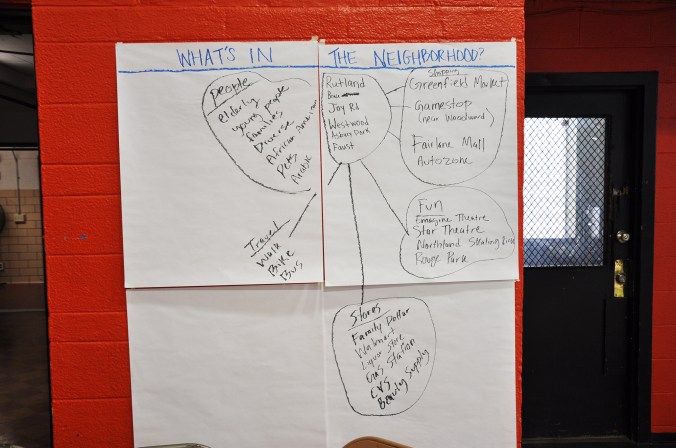 WHAT'S IN THE NEIGHBORHOOD?
people
elderly
young people
families
Diverse
African American
Pets
Arabic
Travel
Walk
Bike
Bus
Rutland
Joy Rd
Westwood
Asbury Park
Faust
Shopping
Greenfield Market
Gamestop
(near Woodward)
Fairlane Mall
Autozone
Fun
Emagine Theatre
Star Theatre
Northland Skating Rink
Rouge Park
Stores
Family Dollar
Walmart
Liquor Store
Gas Station
CVS
Beauty Supply